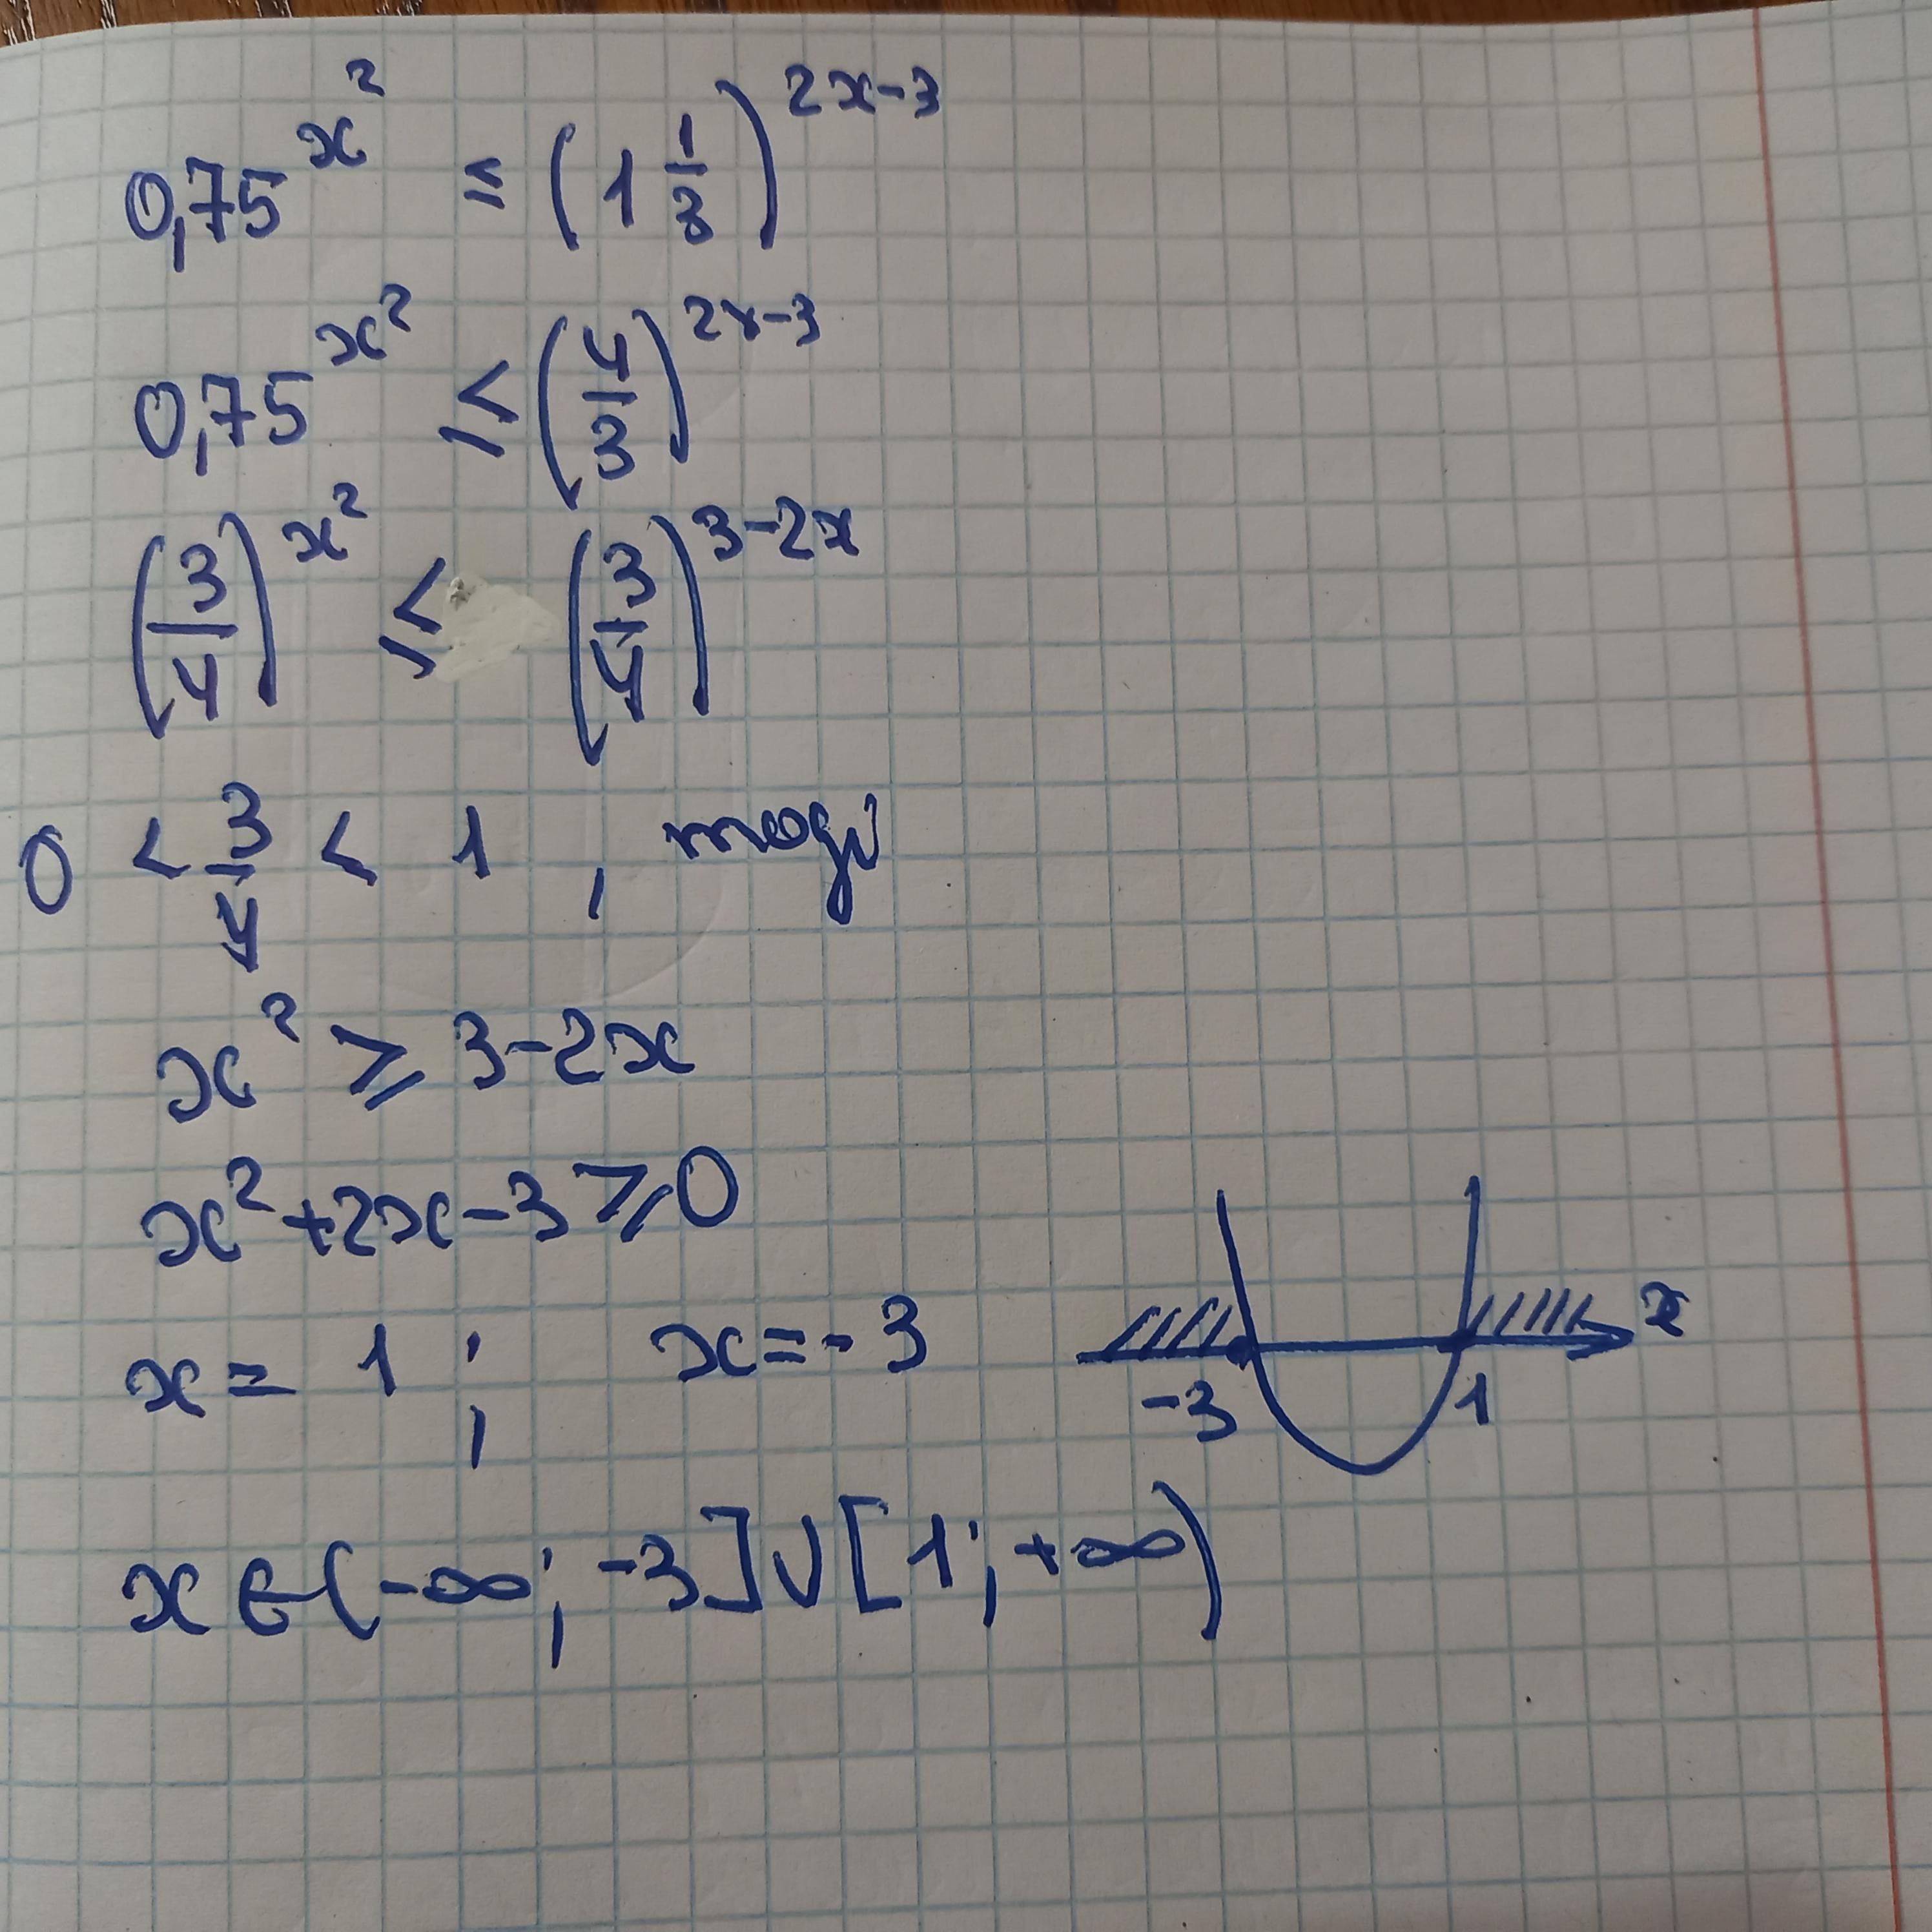 0,75^{x^2} ≤ (1 1/3)^{2x-3}
0,75^{x^2} ≤ (4/3)^{2x-3}
(3/4)^{x^2} ≤ (3/4)^{3-2x}
0 < 3/4 < 1 , тоді
x^2 ≥ 3-2x
x^2+2x-3 ≥ 0
x = 1 ; x = -3
-3 1 x
x ∈ (-∞; -3] ∪ [1; +∞)